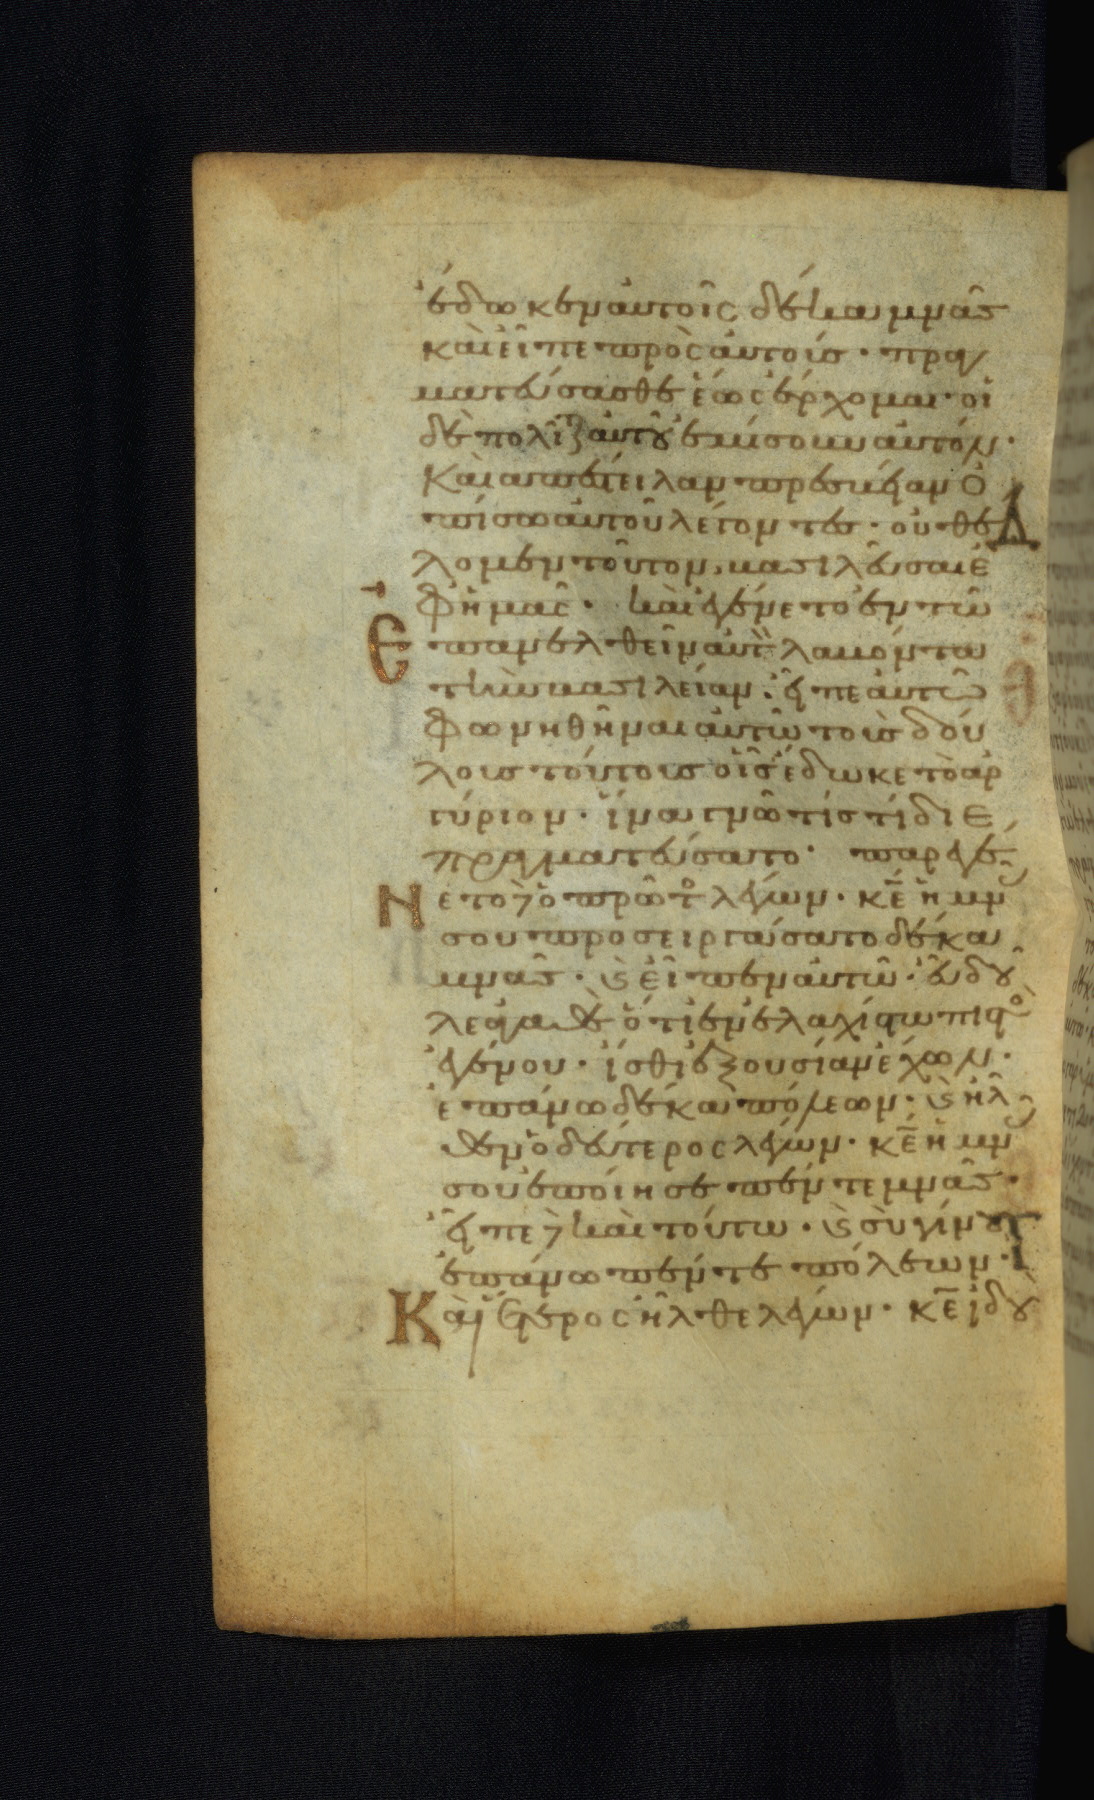 ἔδωκεν αὐτοῖς δέκα μνᾶς
καὶ εἶπε πρὸς αὐτούς · πραγ
ματεύσασθε ἕως ἔρχομαι · οἱ
δὲ πολῖται αὐτοῦ ἐμίσουν αὐτόν ·
Καὶ ἀπέστειλαν πρεσβείαν ὀ
πίσω αὐτοῦ λέγοντες · οὐ θέ
λομεν τοῦτον βασιλεῦσαι ἐ
φ' ἡμᾶς · καὶ ἐγένετο ἐν τῶ
ἐπανελθεῖν αὐτὸν λαβόντα
τὴν βασιλείαν · εἶπε αὐτῶ
φωνηθῆναι αὐτῶ τοὺς δού
λους τούτους οἷς ἔδωκε τὸ ἀρ
γύριον · ἵνα γνῶ τίς τί διε
πραγματεύσατο · παρεγέ
νετο δὲ ὁ πρῶτος λέγων · κε ἡ μν
σου προσειργάσατο δέκα
μνᾶς · καὶ εἶπεν αὐτῶ · εὖ δοῦ
λε ἀγαθὲ ὅτι ἐν ἐλαχίστω πιστὸς
ἐγένου · ἴσθι ἐξουσίαν ἔχων ·
ἐπάνω δέκα πόλεων · καὶ ἦλ
θεν ὁ δεύτερος λέγων · κε ἡ μν
σου ἐποίησε πέντε μνᾶς ·
εἶπε δὲ καὶ τούτω · καὶ σὺ γίνου
ἐπάνω πέντε πόλεων ·
Καὶ ἕτερος ἦλθε λέγων · κε ἰδοὺ